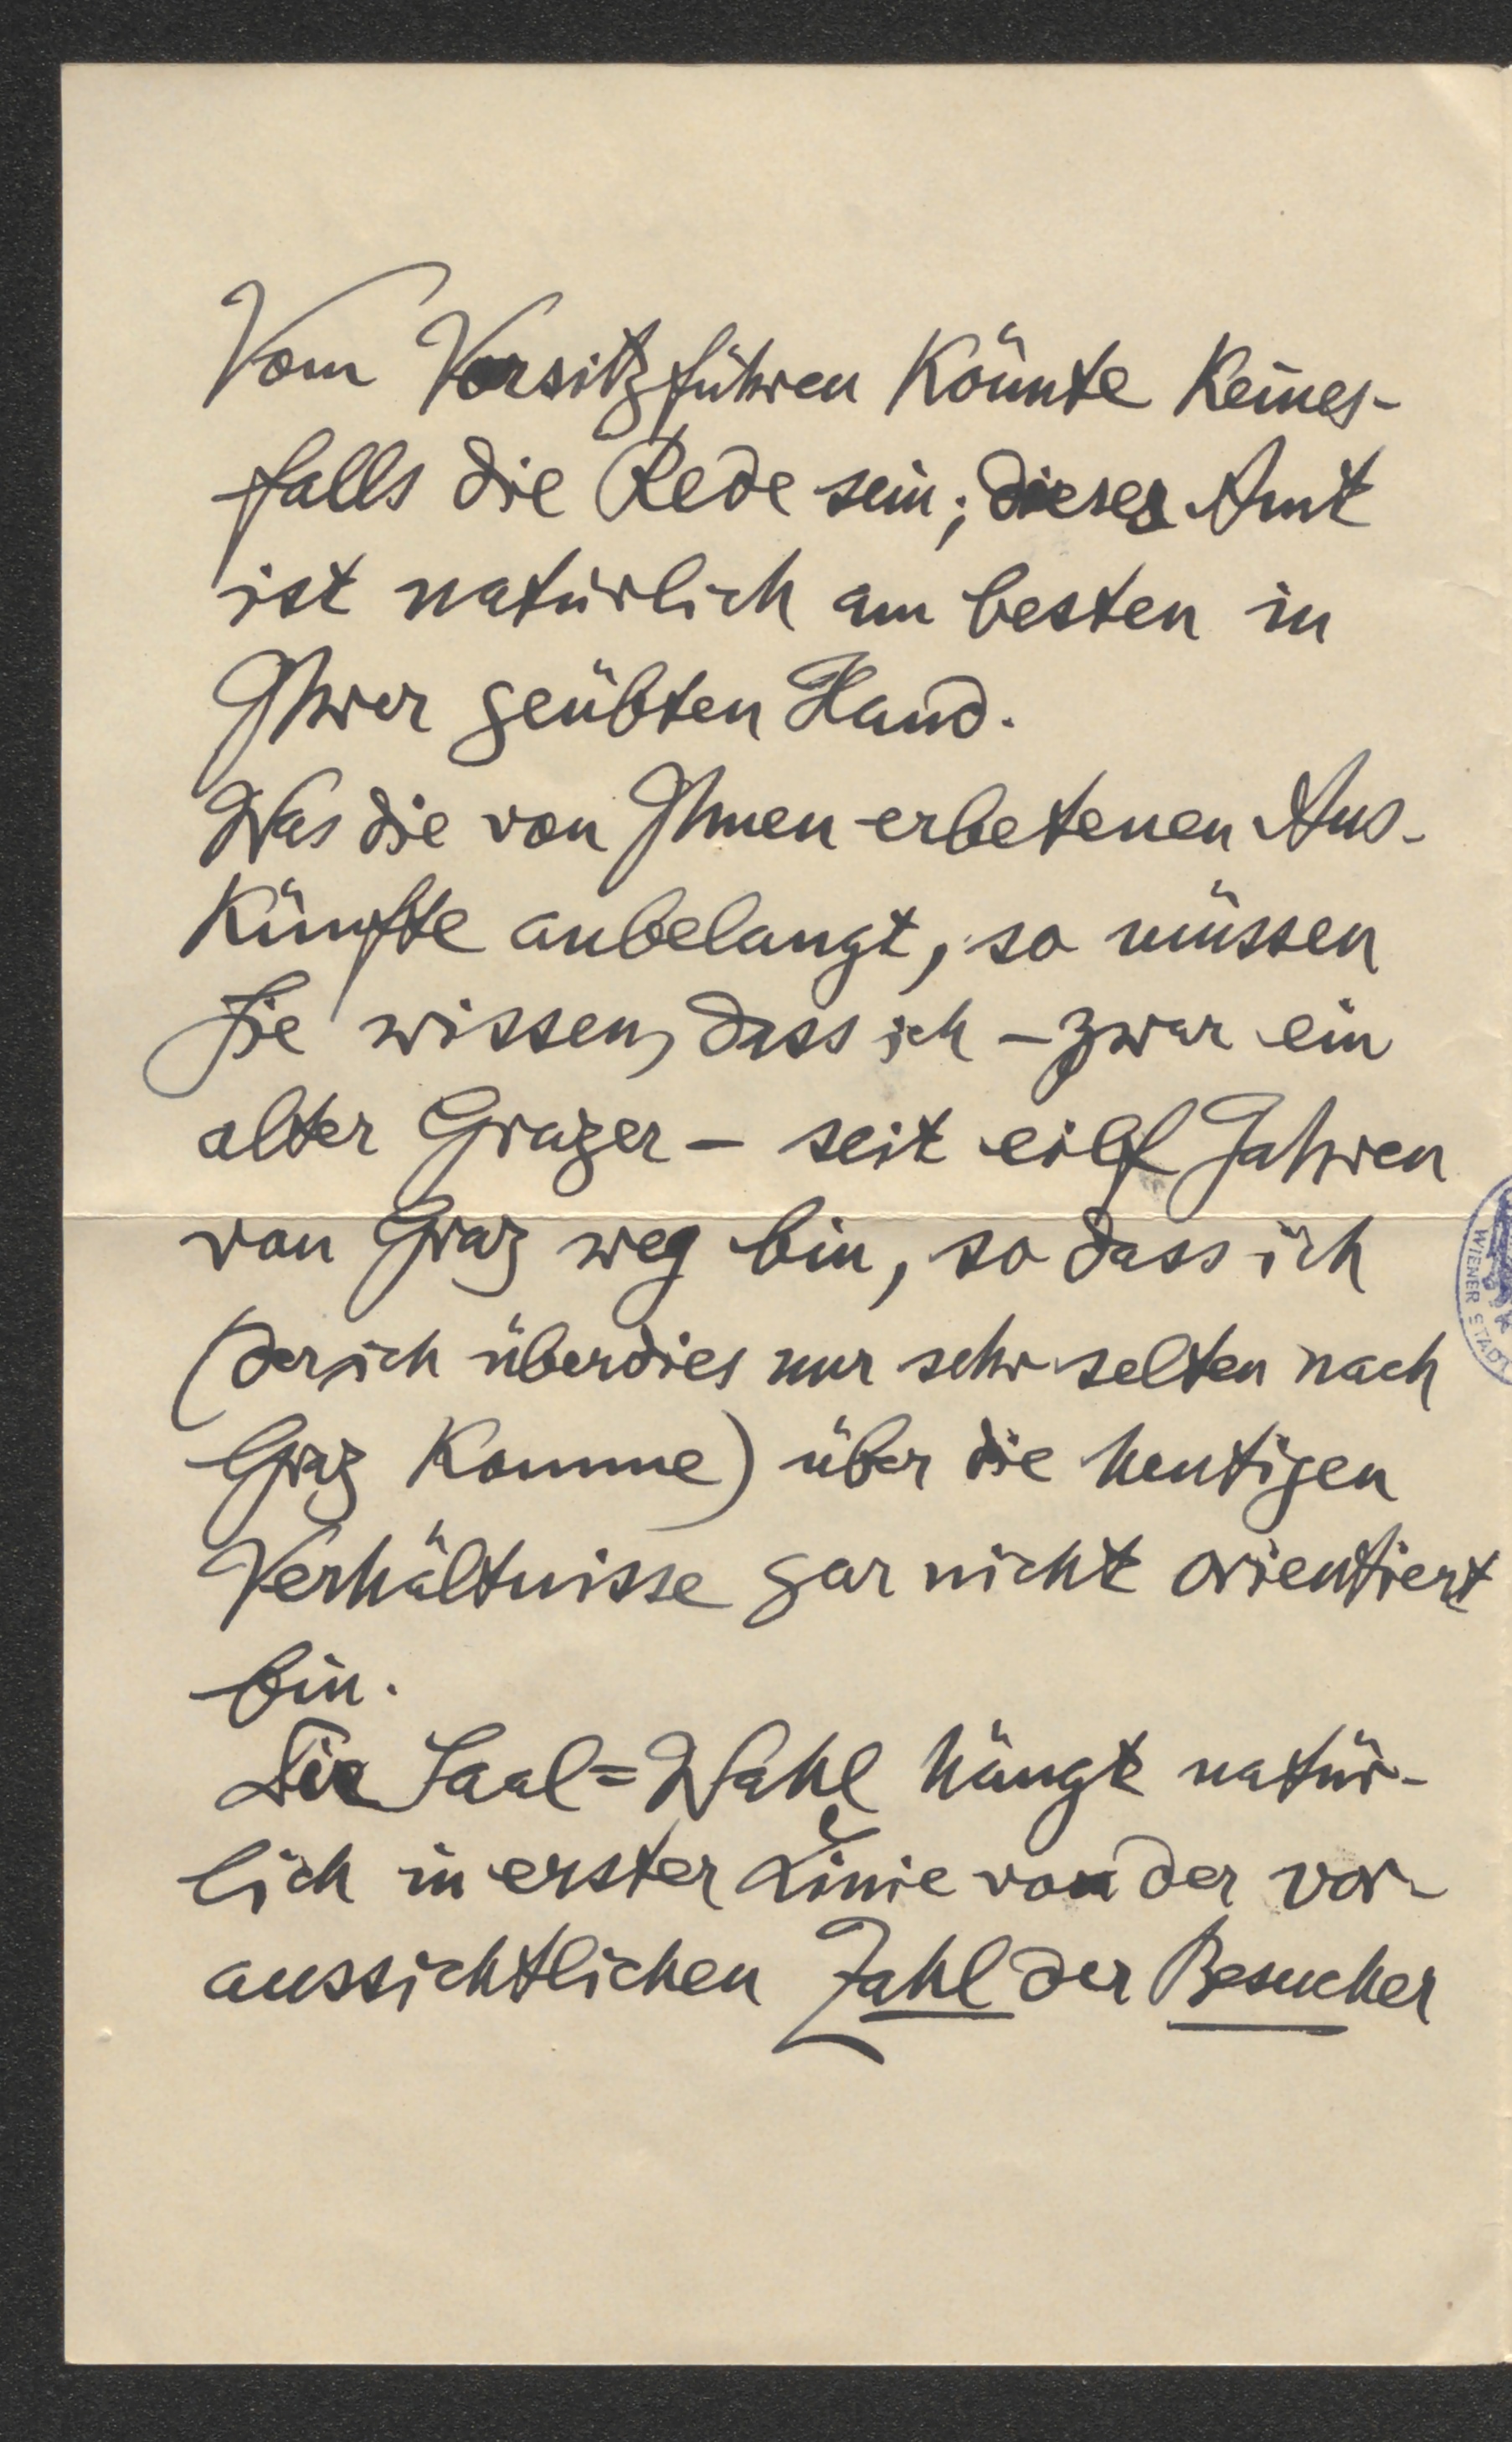 Vom Vorsitzführen könnte keines-
falls die Rede sein; dieses Amt
ist natürlich am besten in
Ihrer geübten Hand.
Was die von Ihnen erbetenen Aus-
künfte anbelangt, so müssen
Sie wissen, dass ich – zwar ein
alter Grazer – seit eilf Jahren
von Graz weg bin, so dass ich
(der ich überdies nur sehr selten nach
Graz komme) über die heutigen
Verhältnisse gar nicht orientiert
bin.
Die Saal=Wahl hängt natür-
lich in erster Linie von der vor-
aussichtlichen Zahl der Besucher
WIENER STADT